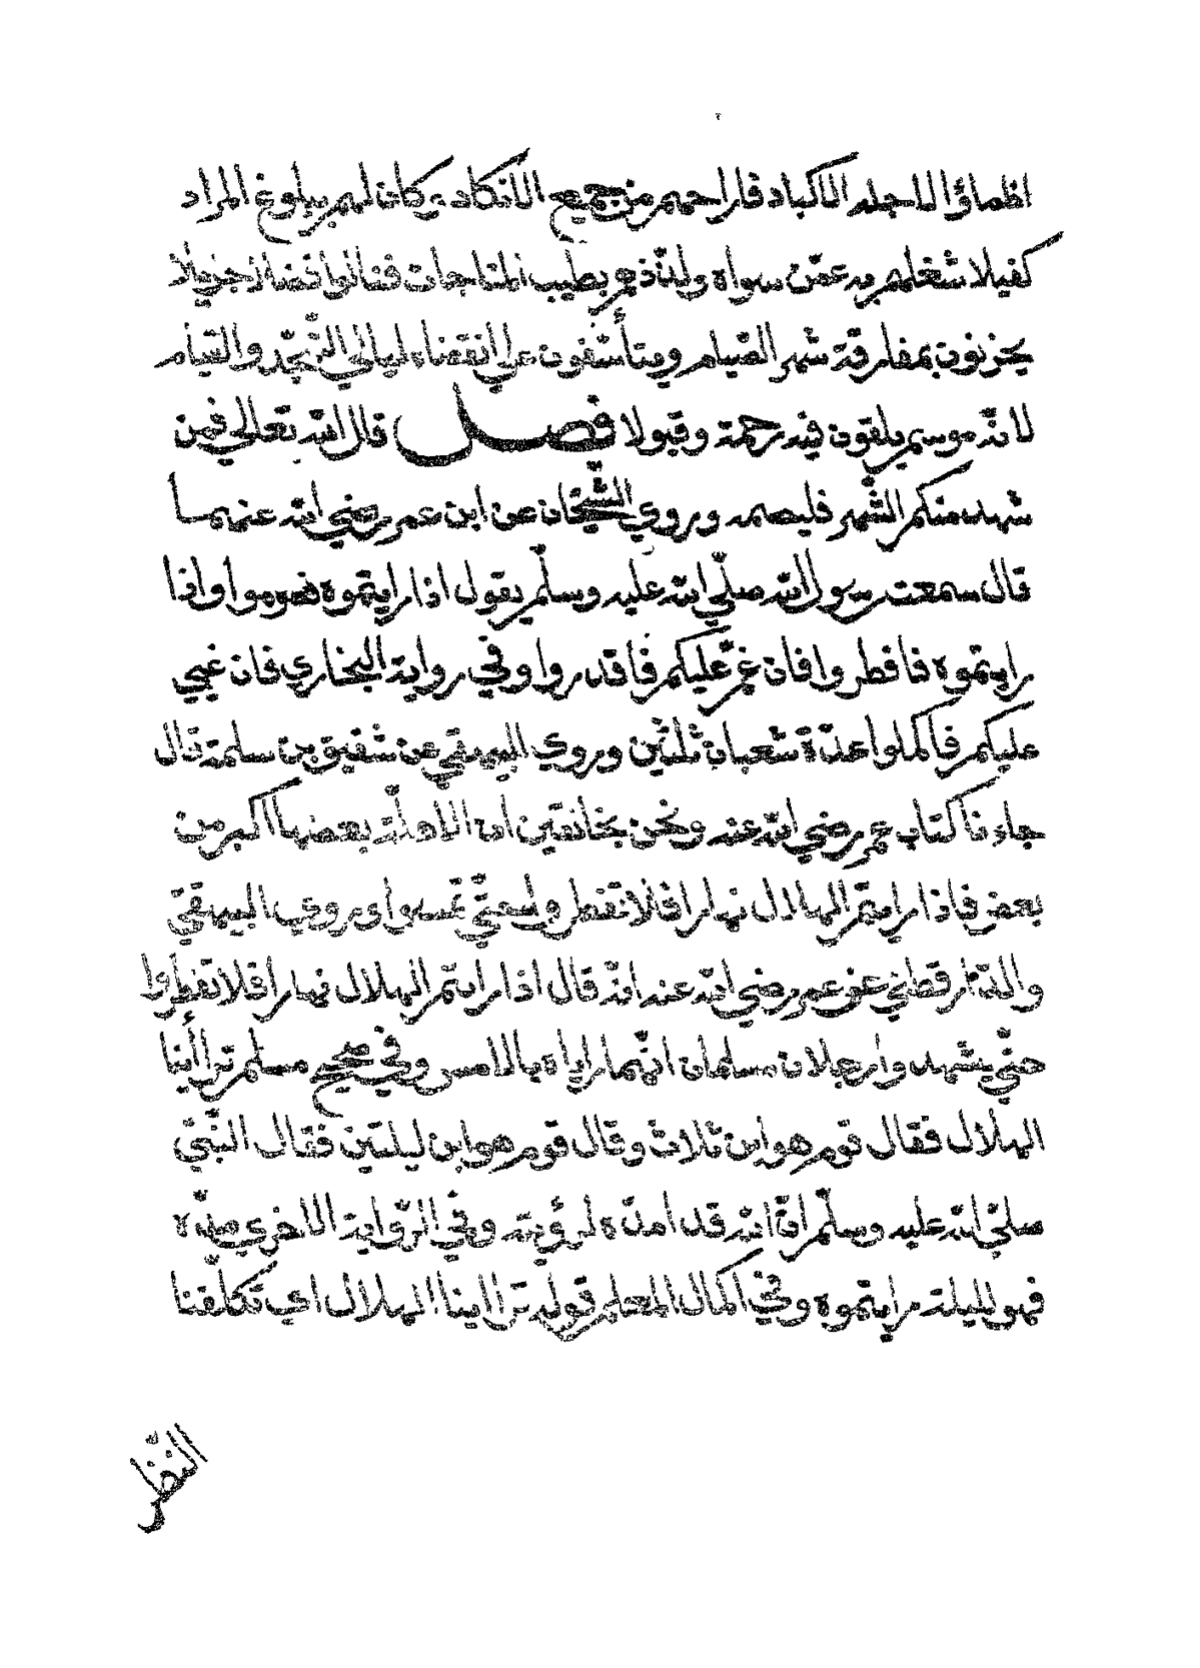 اظماؤا لاجله الاكباد فاراحهم من جميع الانكاد وكان لهم ببلوغ المراد
كفيلا شغلهم به عمّن سواه ولذّذهم بطيب المناجات فنالوا فضلا جزيلا
يحزنون بمفارقة شهر الصّيام ويتأسّفون على انقضاء ليالي التّهجّد والقيام
لانّه موسم يلقون فيه رحمة وقبولا فصل قال الله تعالى فمن
شهد منكم الشّهر فليصمه وروي الشّيخان عن ابن عمر رضي الله عنهما
قال سمعت رسول الله صلّي الله عليه وسلّم يقول اذا رايتموه فصوموا واذا
رايتموه فافطروا فان غمّ عليكم فاقدروا وفي رواية البخاري فان غبي
عليكم فاكملوا عدّة شعبان ثلثين وروي البيهقي عن شقيق بن سلمة قال
جاءنا كتاب عمر رضي الله عنه ونحن بخانقين انّ الاهلّة بعضها اكبر من
بعض فاذا رايتم الهلال نهارا فلا تفطروا حتّي تمسوا وروي البيهقيّ
والدّارقطني عن عمر رضي الله عنه انّه قال اذا رايتم الهلال نهارا فلا تفطروا
حتّي يشهد رجلان مسلمان انّهما راياه بالامس وفي صحيح مسلم تراأينا
الهلال فقال قوم هو ابن ثلاث وقال قوم هو ابن ليلتين فقال النّبيّ
صلّي الله عليه وسلّم انّ الله قد امدّه لرؤيته وفي الرّواية الاخري مدّه
فهو لليلة رايتموه وفي اكمال المعلم قوله تراأينا الهلال اي تكلّفنا
النّظر